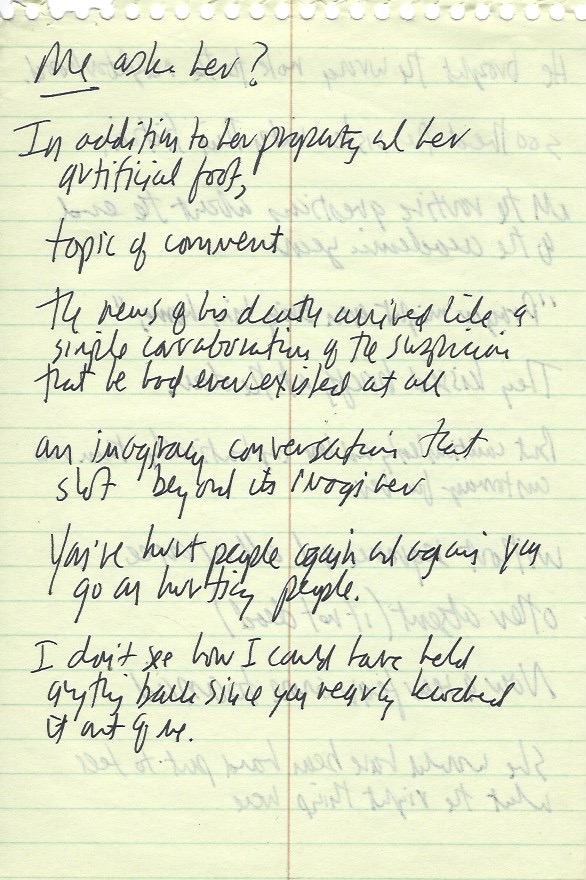 Me ask her?
In addition to her property and her
artificial foot,
topic of comment
the news of his death arrived like a
simple corroboration of the suspicion
that he had ever existed at all
an imaginary conversation that
shot beyond its imaginer
You've hurt people again and again you
go on hurting people.
I don't see how I could have held
anything back since you nearly knocked
it out of me.